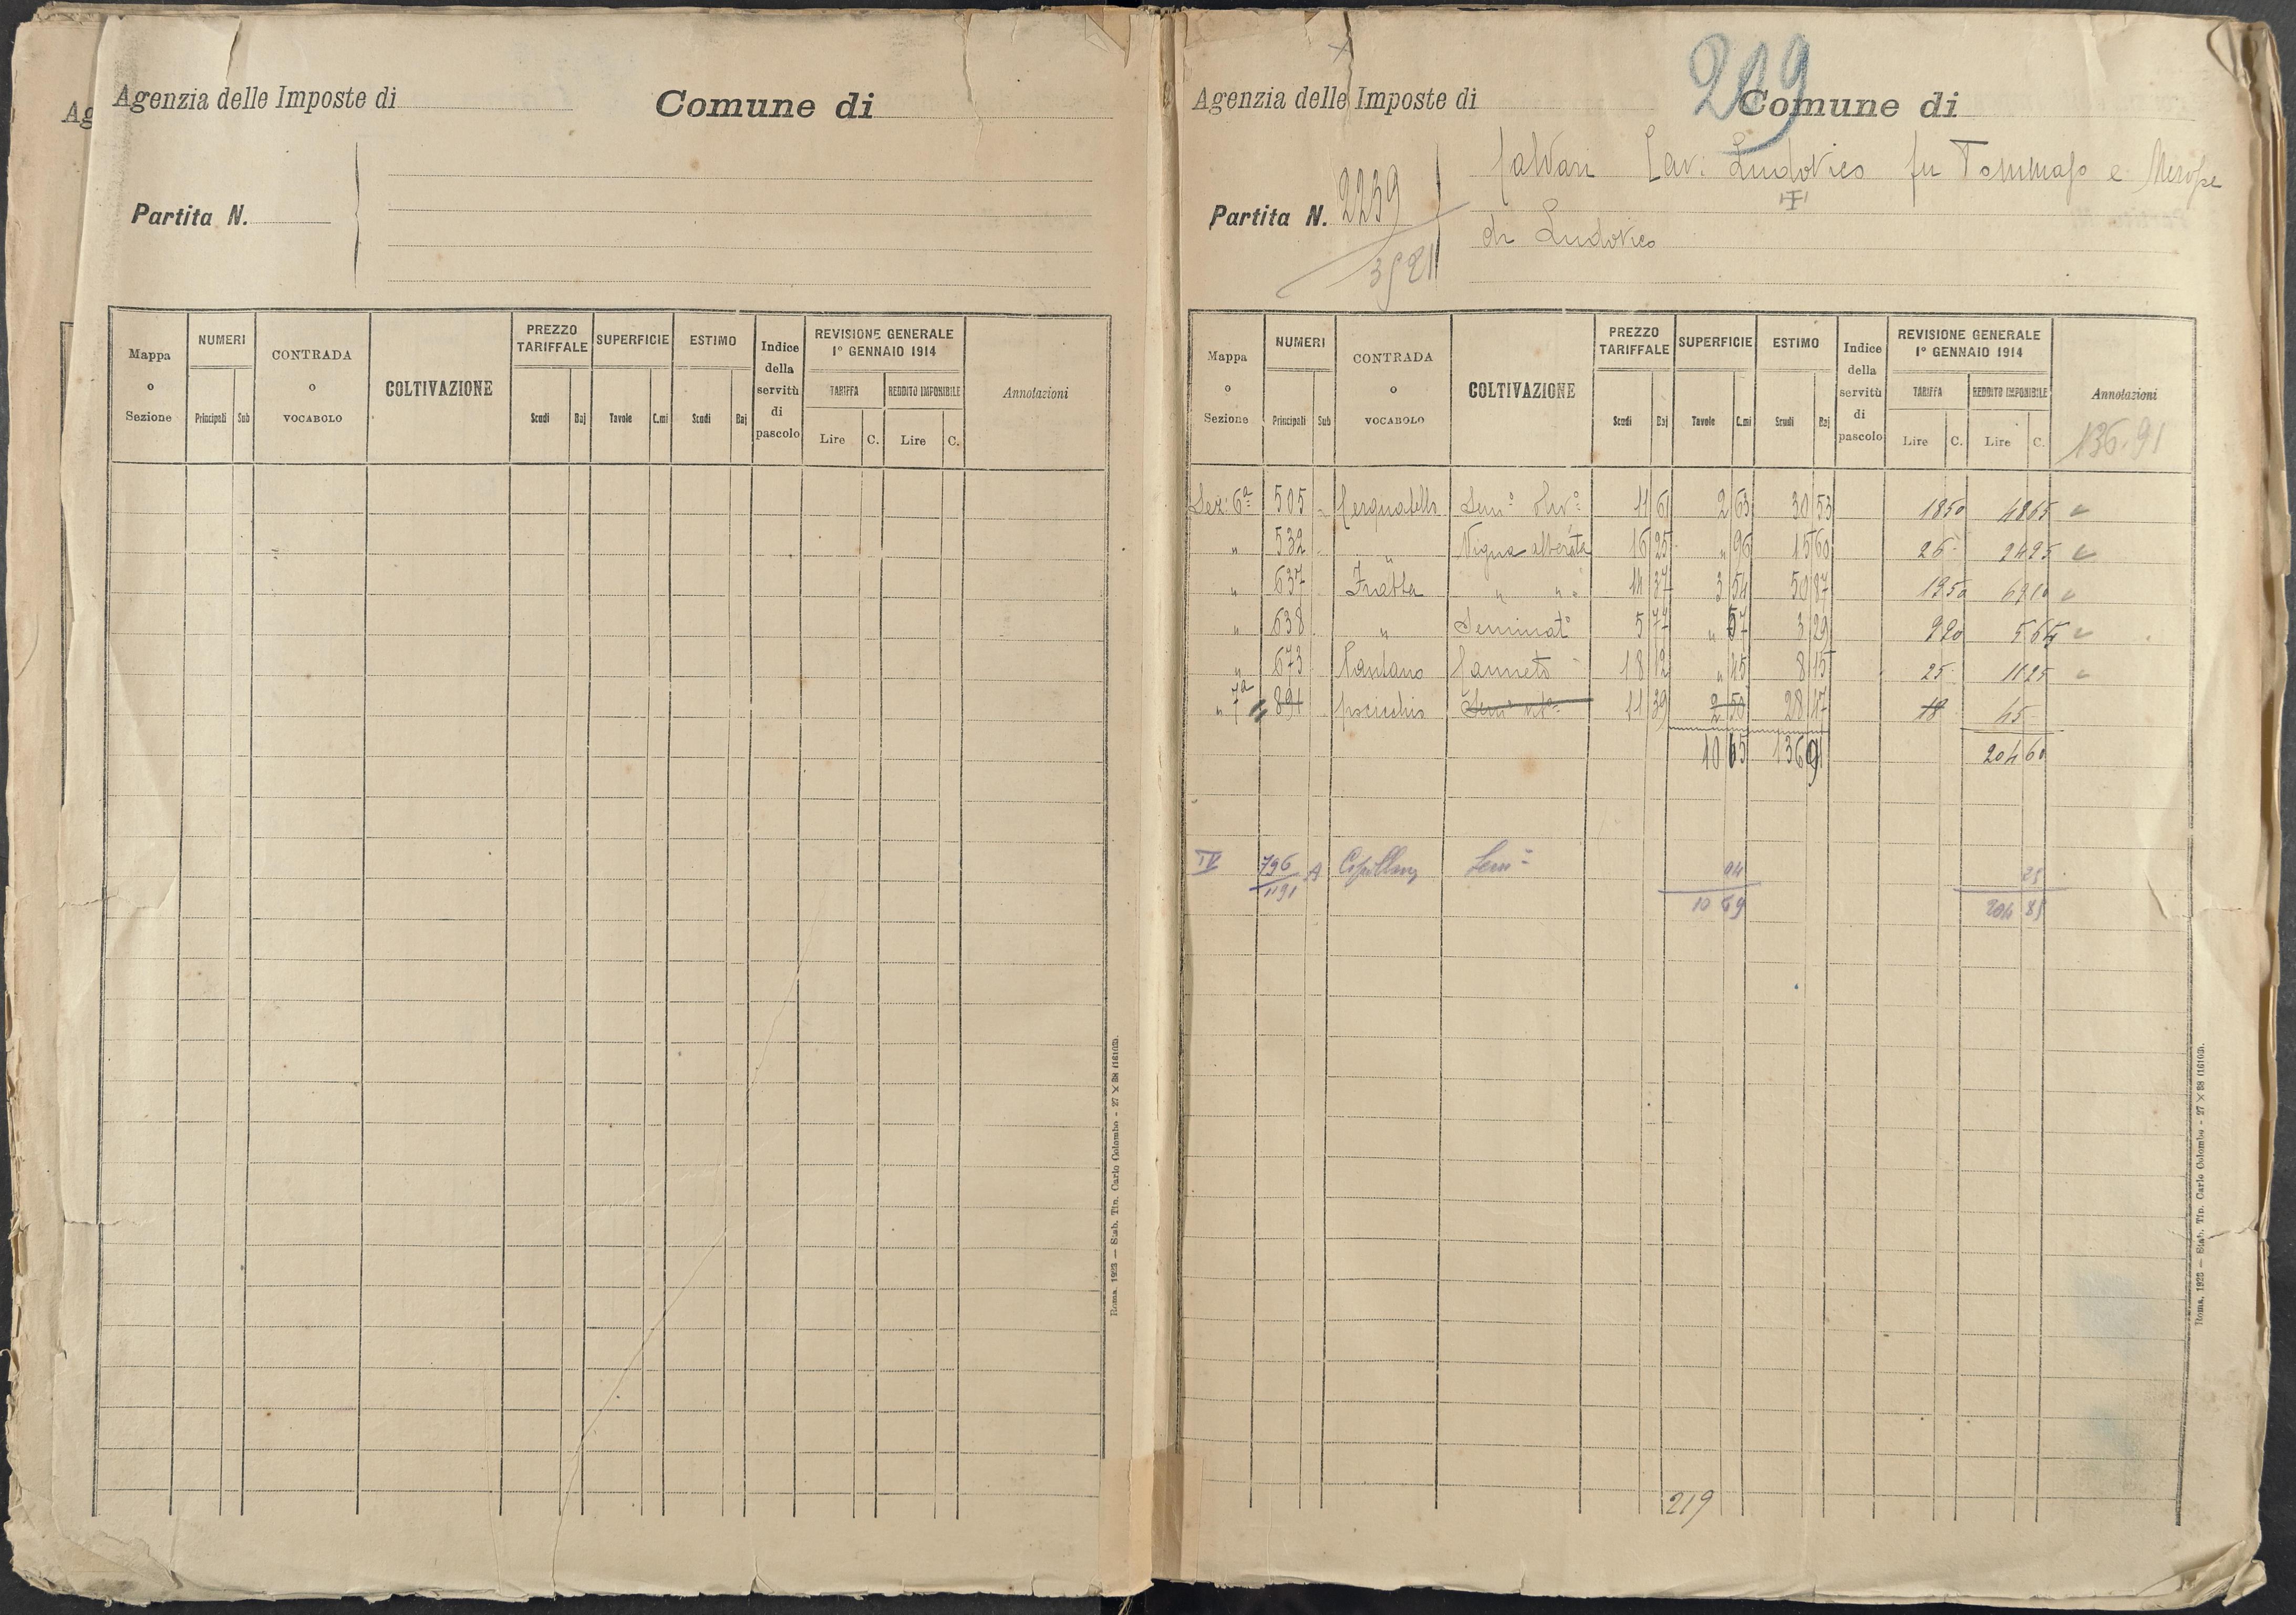 Ag
Agenzia delle Imposte di
Comune di
Partita N.
Mappa o Sezione
NUMERI
Principali Sub
CONTRADA o VOCABOLO
COLTIVAZIONE
PREZZO TARIFFALE
Scudi Baj
SUPERFICIE
Tavole C.mi
ESTIMO
Scudi Baj
Indice della servitù di pascolo
REVISIONE GENERALE 1° GENNAIO 1914
TARIFFA
Lire C.
REDDITO IMPONIBILE
Lire C.
Annotazioni
Roma, 1923 — Stab. Tip. Carlo Colombo - 27 × 88 (16103).
219
Agenzia delle Imposte di
Comune di
Partita N. 2239
Cav: Ludovico fu Tommaso e Merope
di Ludovico
Mappa o Sezione
NUMERI
Principali Sub
CONTRADA o VOCABOLO
COLTIVAZIONE
PREZZO TARIFFALE
Scudi Baj
SUPERFICIE
Tavole C.mi
ESTIMO
Scudi Baj
Indice della servitù di pascolo
REVISIONE GENERALE 1° GENNAIO 1914
TARIFFA
Lire C.
REDDITO IMPONIBILE
Lire C.
Annotazioni
136.91
Sez: 6ª 505 Sem° Oliv° 11 61 2 63 30 53 18 50 48 65
" 532 " Vigna alberata 16 25 " 96 15 60 26 - 24 95
" 637 Fratta " " 14 37 3 54 50 87 19 50
" 638 " Seminat° 5 77 " 57 3 29 9 90 5 64
" 673 Pantano Canneto 18 12 " 45 8 15 25 - 11 25
" 7ª 891 11 39 2 50 28 47 18 45 -
10 65 136 91 204 60
IV 796 A Sem° 04 25
1191 10 69 204 85
219
Roma, 1923 — Stab. Tip. Carlo Colombo - 27 × 88 (16103).